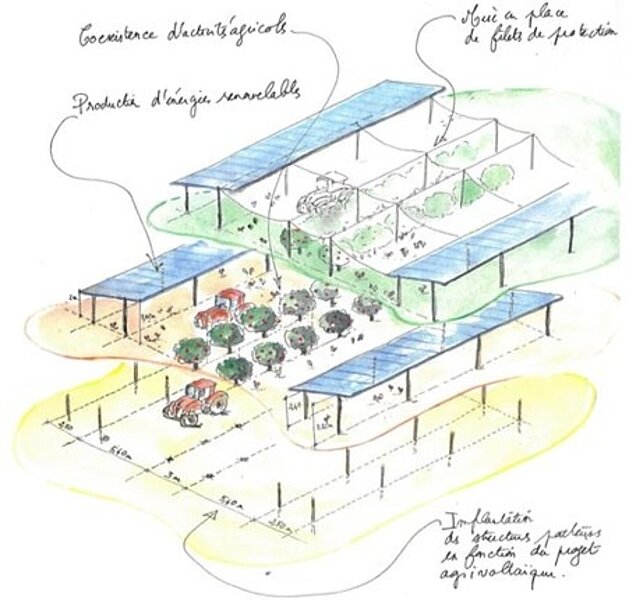 Coexistence d'activités agricoles
Mise en place
de filets de protection
Production d'énergies renouvelables
240
2,50
5,40 m
3 m
5,40 m
2,50 m
Implantation
de structures porteuses
en fonction du projet
agrivoltaïque.